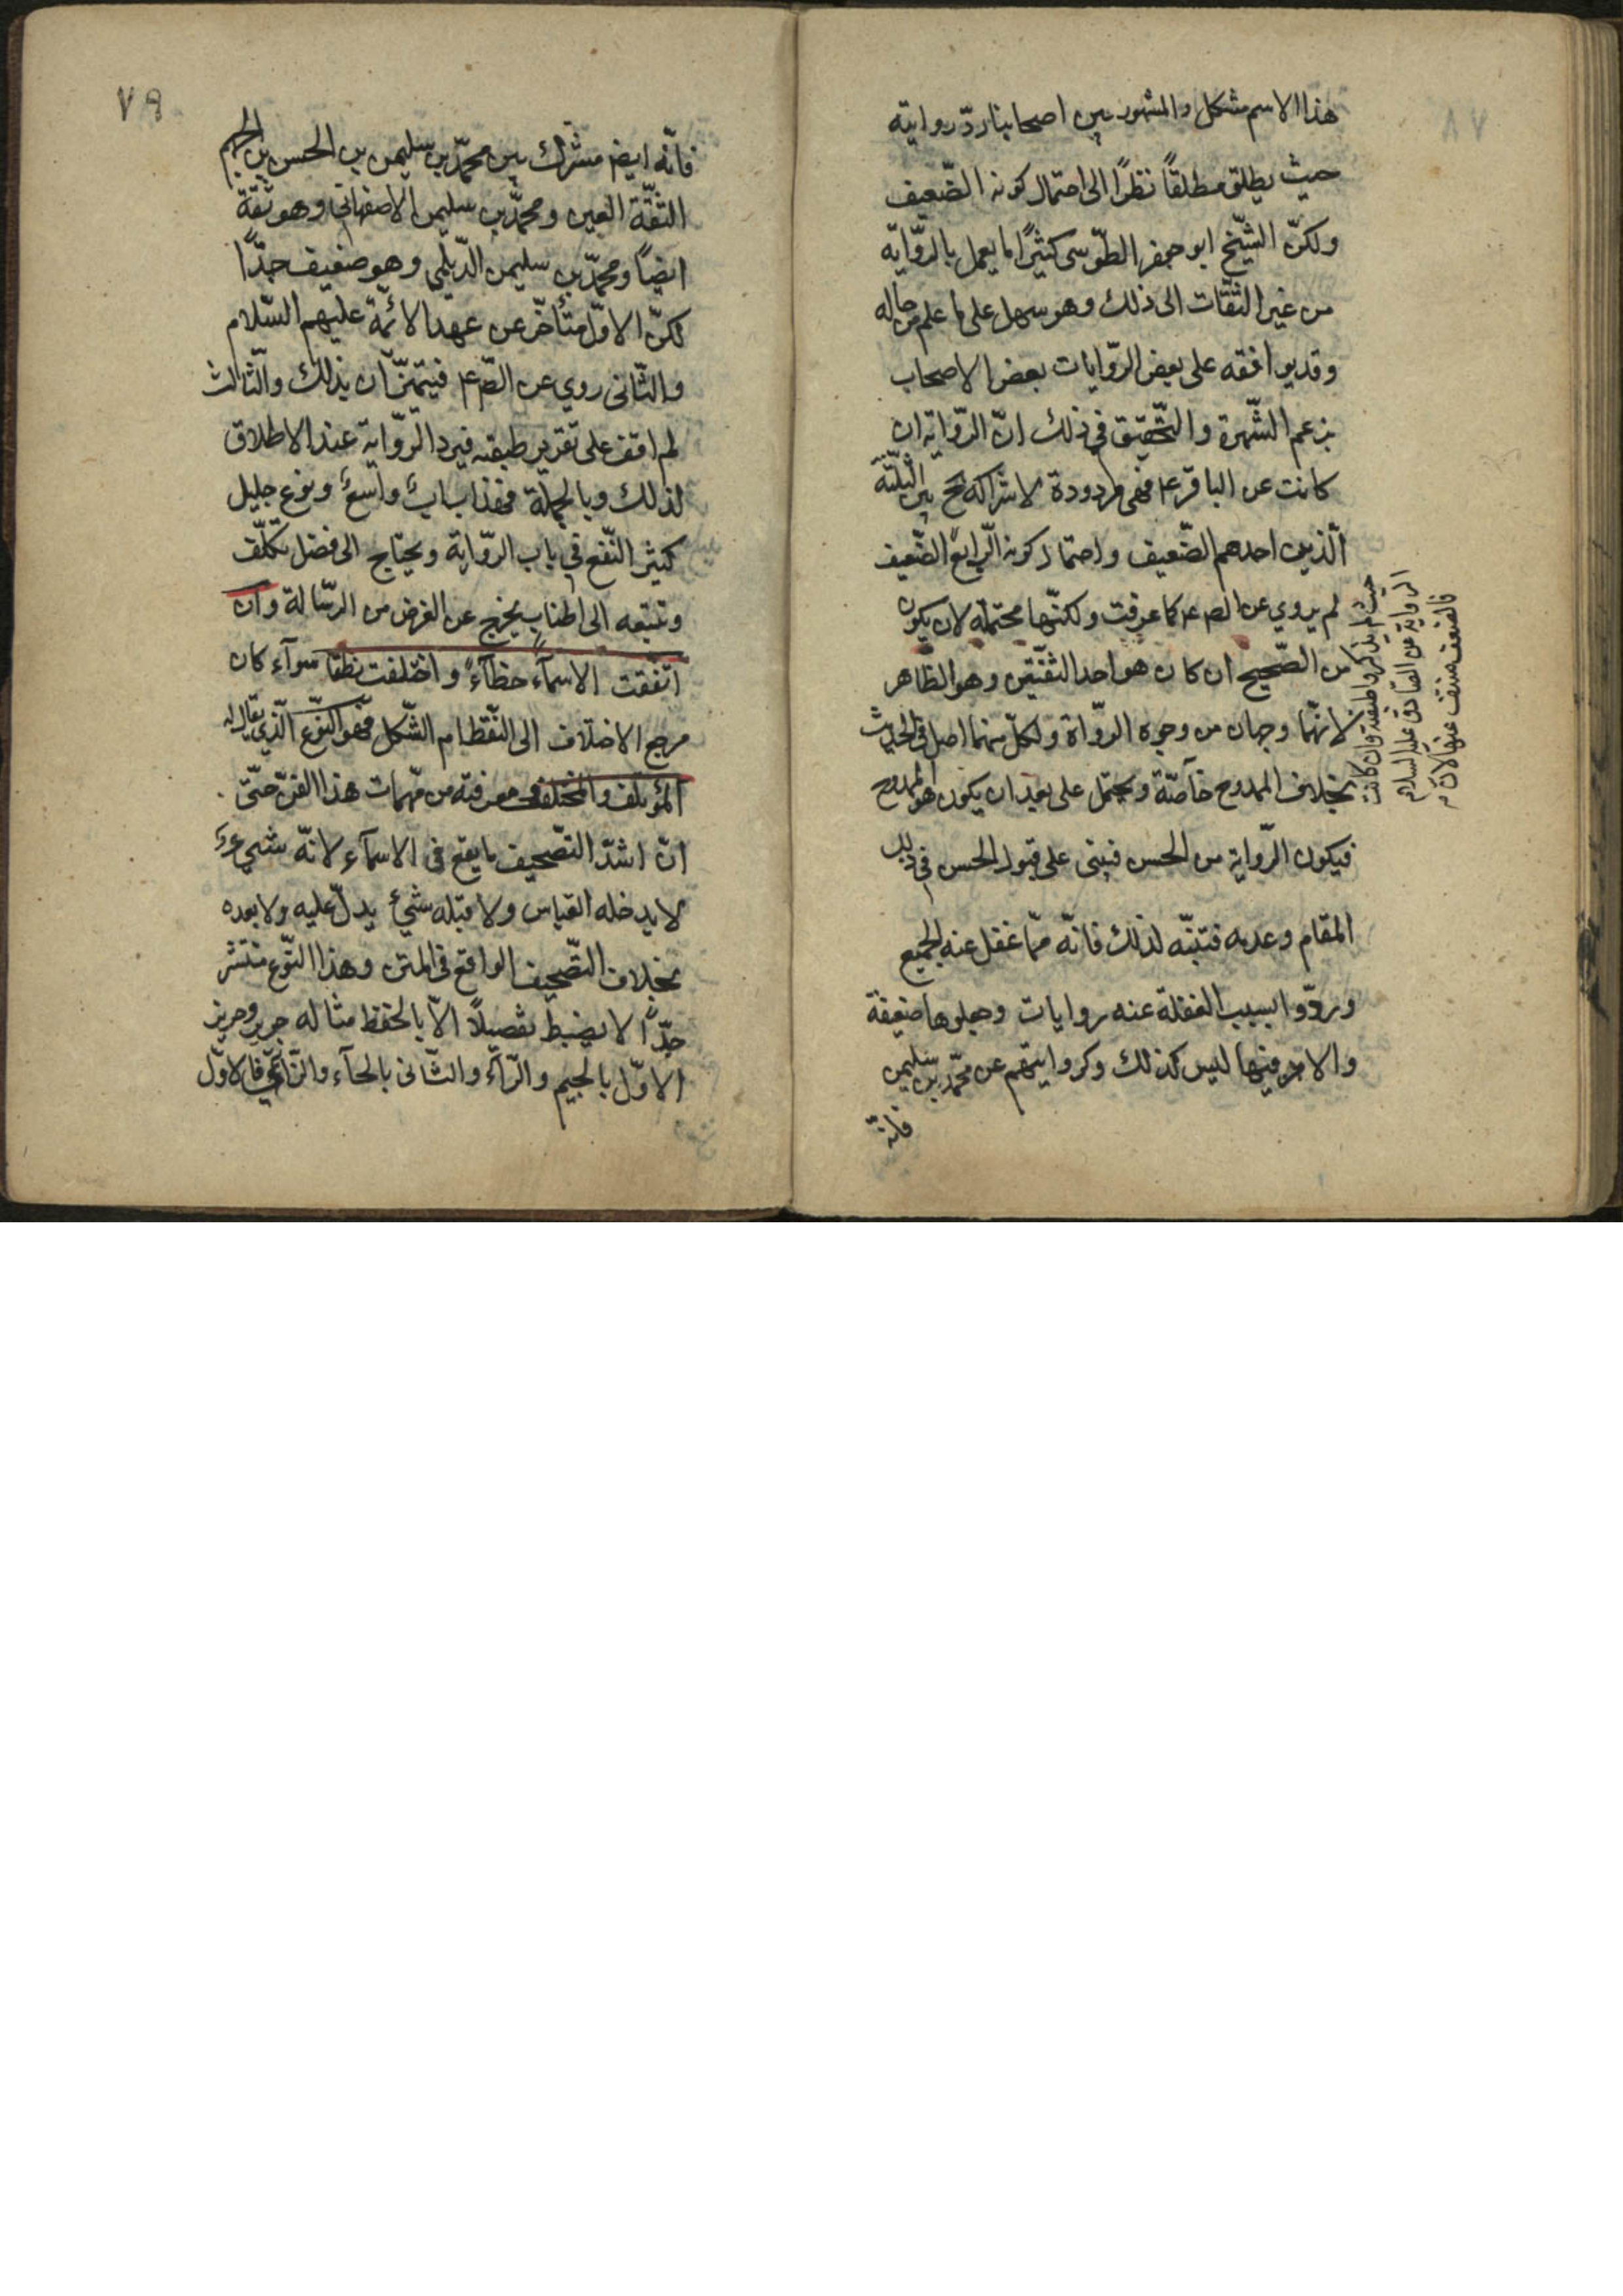 هذا الاسم مشكل والمشهور بين اصحابنا ردّ روايته
حيث يطلق مطلقًا نظرًا الى احتمال كونه الضّعيف
ولكنّ الشّيخ ابو جعفر الطّوسى كثيرًا ما يعمل بالرّواية
من غير التفات الى ذلك وهو سهل على ما علم من حاله
وقد يوافقه على بعض الرّوايات بعض الاصحاب
بزعم الشّهرة والتّحقيق في ذلك انّ الرّواية ان
كانت عن الباقر ع فهى مردودة لاشتراكه ح بين الثّلثة
الّذين احدهم الضّعيف واحتمال كونه الرّابع الضّعيف
حيث لم يذكروا طبقته وان كانت
الرواية عن الصّادق عليه السلام
فالضعف منتف عنها لان
لم يروي عن الص ع كما عرفت ولكنّها محتملة لان يكون
من الصّحيح ان كان هو احد الثّقتين وهو الظاهر
لانّهما وجهان من وجوه الرّواة ولكلّ منهما اصل فى الحديث
بخلاف الممدوح خاصّة ويحتمل على بعد ان يكون هو الممدوح
فيكون الرّواية من الحسن فيبنى على قبول الحسن في ذلك
المقام وعدمه فتنبّه لذلك فانّه ممّا غفل عنه الجميع
وردّوا بسبب الغفلة عنه روايات وجعلوها ضعيفة
والامر فيها ليس كذلك وكروايتهم عن محمّد بن سليمن
فانّه
٧٩
فانّه ايض مشترك بين محمّد بن سليمن بن الحسن بن الجهم
الثّقة العين ومحمّد بن سليمن الاصفهاني وهو ثقة
ايضًا ومحمّد بن سليمن الدّيلمي وهو ضعيف جدًّا
لكنّ الاوّل متأخّر عن عهد الائمّة عليهم السّلام
والثّانى روي عن الص ع فيتميّزان بذلك والثّالث
لم اقف على تقرير طبقته فيرد الرّواية عند الاطلاق
لذلك وبالجملة فهذا باب واسع ونوع جليل
كثير النّفع في باب الرّواية ويحتاج الى فضل تكلّف
وتتبّعه الى اطناب يخرج عن الغرض من الرّسالة وان
اتّفقت الاسماء خطّاً واختلفت نطقا سوآء كان
مرجع الاختلاف الى النّقط ام الشّكل فهو النّوع الّذي يقال له
المؤتلف والمختلف معرفته من مهمات هذا الفنّ حتّى
انّ اشدّ التصّحيف ما يقع في الاسمآء لانّه شيء
لا يدخله القياس ولا قبله شيء يدلّ عليه ولا بعده
بخلاف التصّحيف الواقع في المتن وهذا النّوع منتشر
جدًّا لا يضبط تفصيلًا الّا بالحفظ مثاله جرير وحريز
الاوّل بالجيم والرّآء والثّانى بالحآء والزّاي فالاوّل